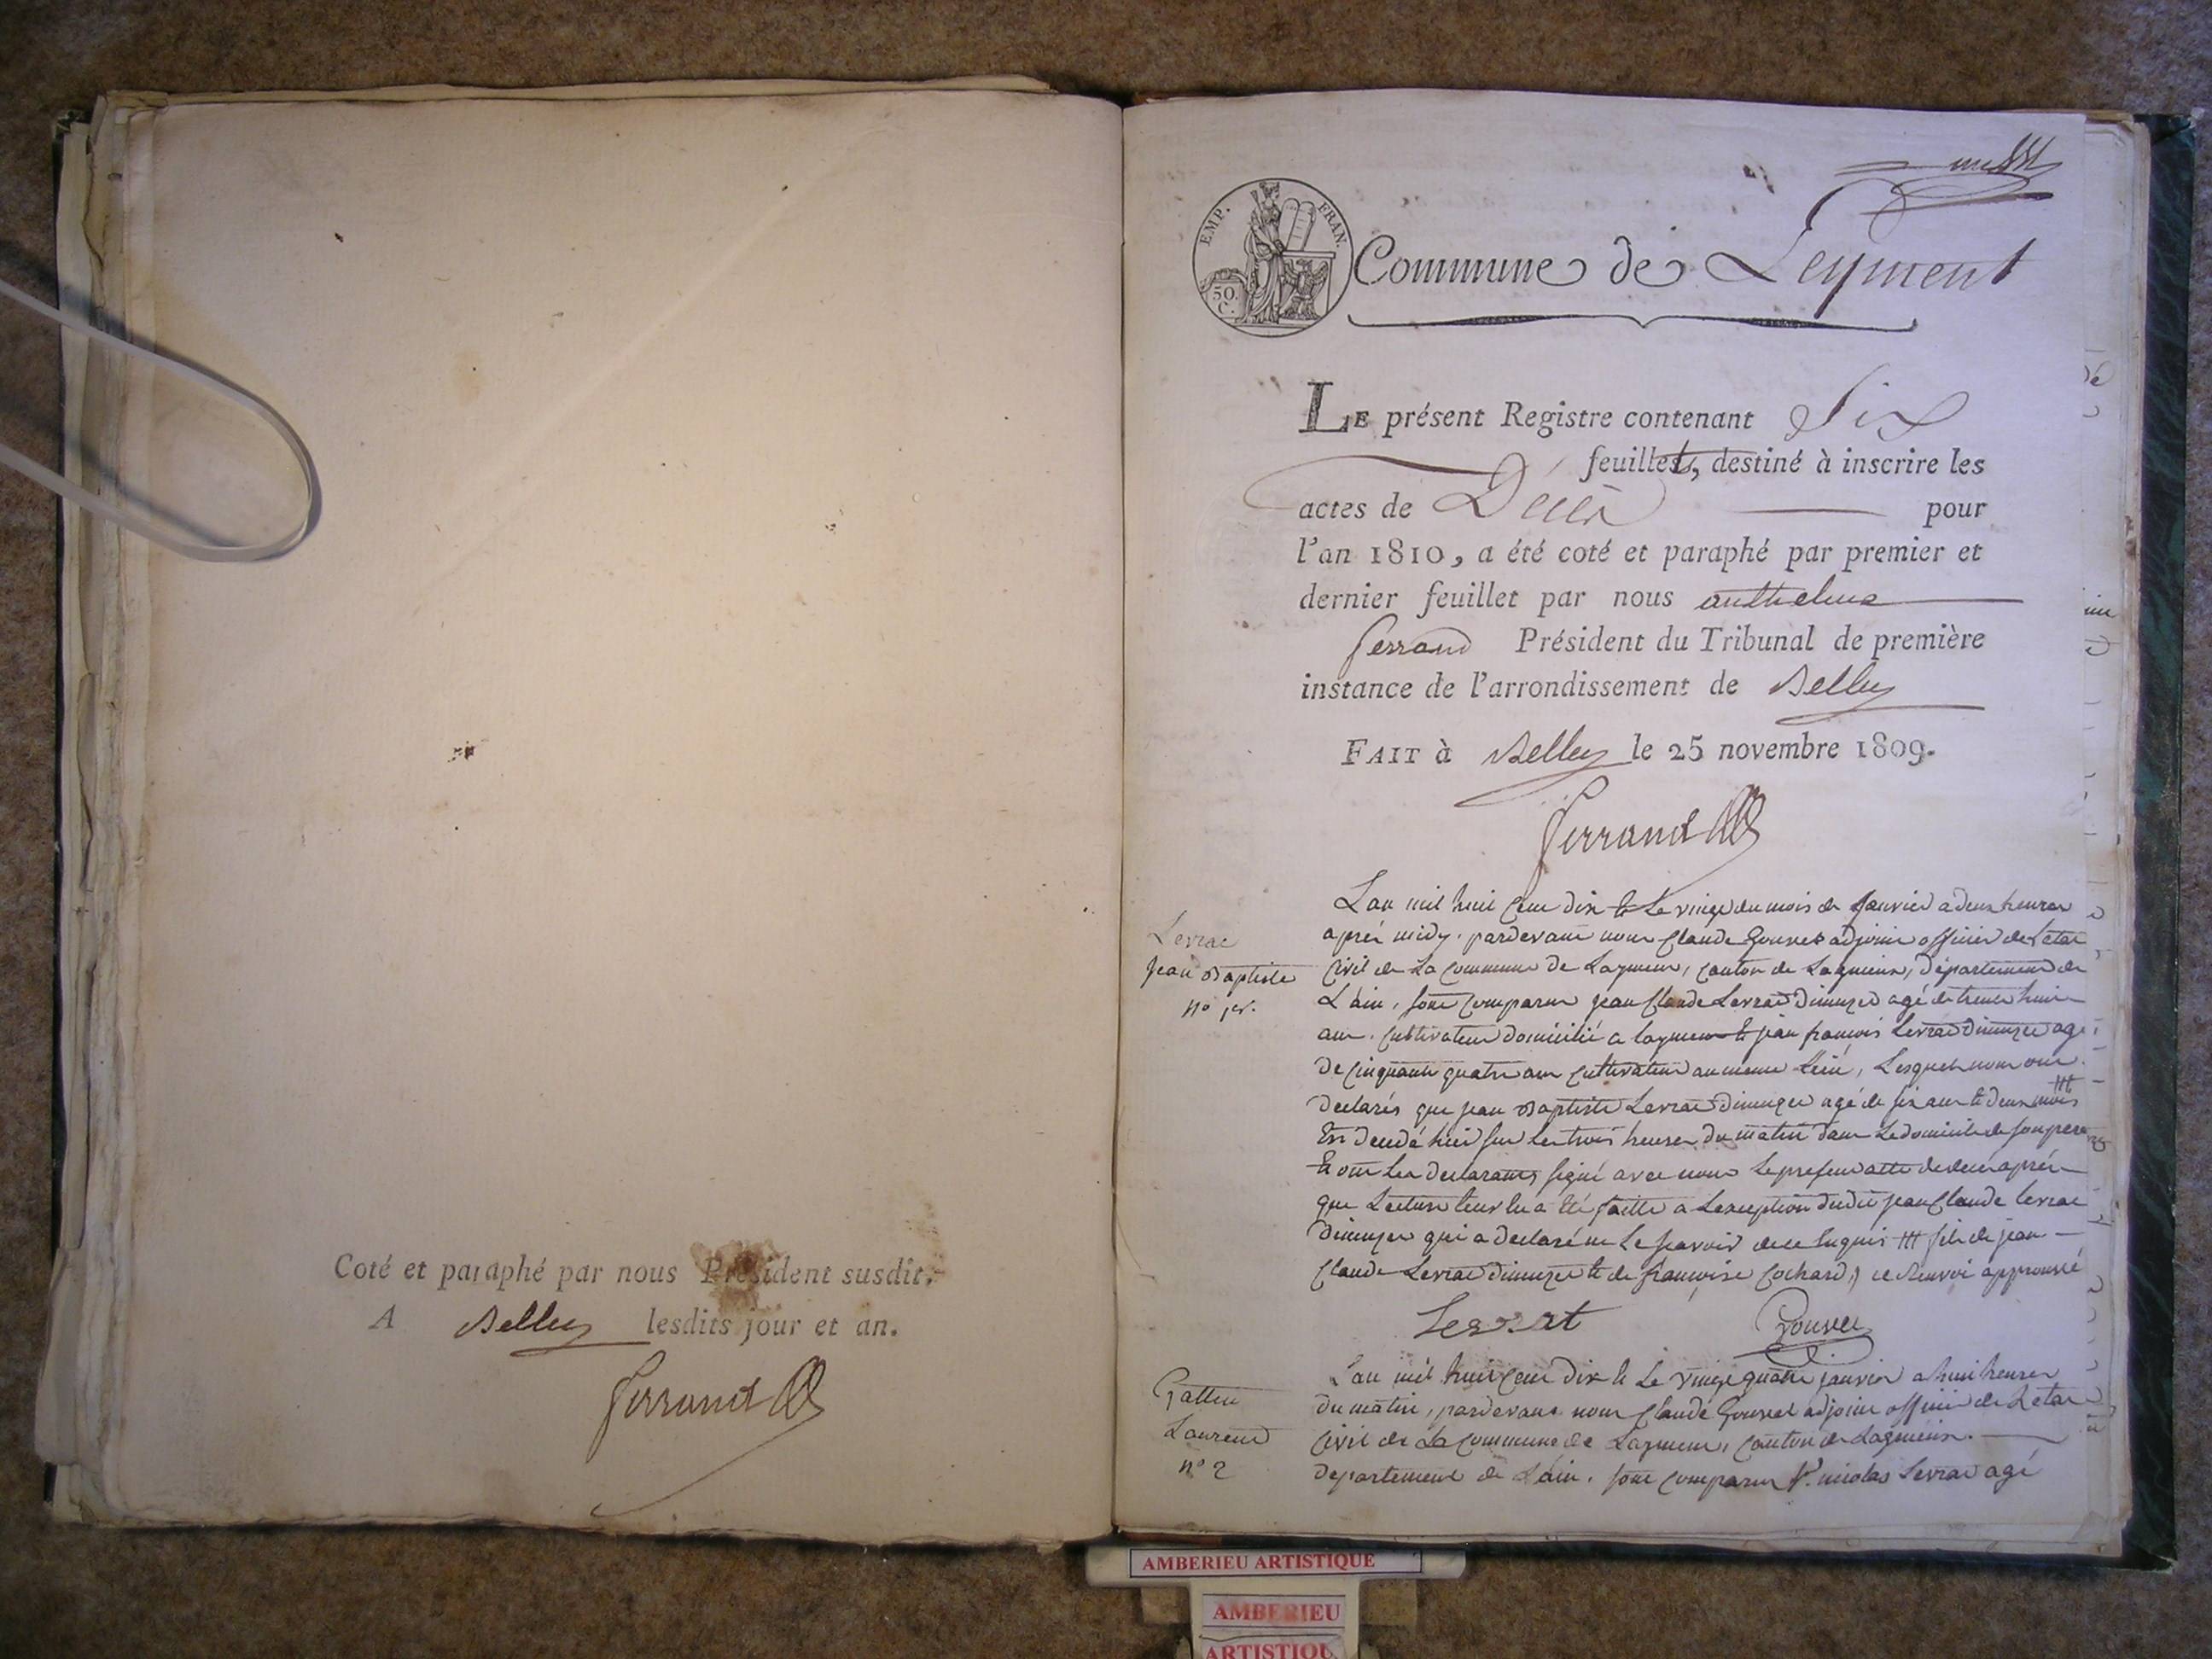 Coté et paraphé par nous Président susdit.
A Belley lesdits jour et an.
Ferrand
EMP. FRAN.
50.
C.
Commune de Leyment
LE présent Registre contenant Six
feuillets, destiné à inscrire les
actes de Décès pour
l'an 1810, a été coté et paraphé par premier et
dernier feuillet par nous anthelme
ferrand Président du Tribunal de première
instance de l'arrondissement de Belley
FAIT à Belley le 25 novembre 1809.
Ferrand
Levrat
Jean Baptiste
no 1er.
L'an mil huit cent dix & Le vingt du mois de Janvier a deux heures
après midy. pardevant nous Claude Gouvet adjoint officier de L'etat
Civil de La Commune de Laÿment, Canton de Lagnieux, Département de
L'ain, sont comparus jean Claude Levrat Dimuzet agé de trente huit
ans. Cultivateur domicilié a layment & jean françois Levrat Dimuzet agé
de Cinquante quatre ans Cultivateur au meme lieu, Lesquels nous ont
declarés que jean Baptiste Levrat Dimuzet agé de six ans & deux mois #
Est decedé hier sur Les trois heures du matin dans Le domicile de son pere
Et ont Les declarants signé avec nous Le present acte de deces après
que Lecture leur en a été faitte a L'exception dudit jean Claude levrat
Dimuzet qui a declaré ne Le savoir de ce Enquis # fils de jean
Claude Levrat Dimuzet & de françoise Cochard,) ce Renvoi approuvé
Levrat Gouvet
Gatteu
Laurent
no 2
L'an mil huit cent dix & Le vingt quatre janvier a huit heures
du matin, pardevant nous Claude Gouvet adjoint officier de L'etat
Civil de La Commune de Laÿment, Canton de Lagnieux.
departement de L'ain, sont comparus Sr. nicolas Levrat agé
AMBERIEU ARTISTIQUE
AMBERIEU
ARTISTIQU